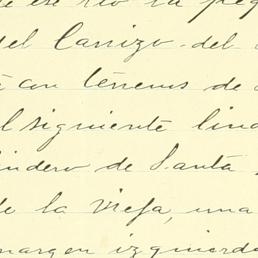 de ese río la peq
del Carrizo del
con terrenos de
el siguiente lin
lindero de Santa
de la vieja, una
margen izquierda